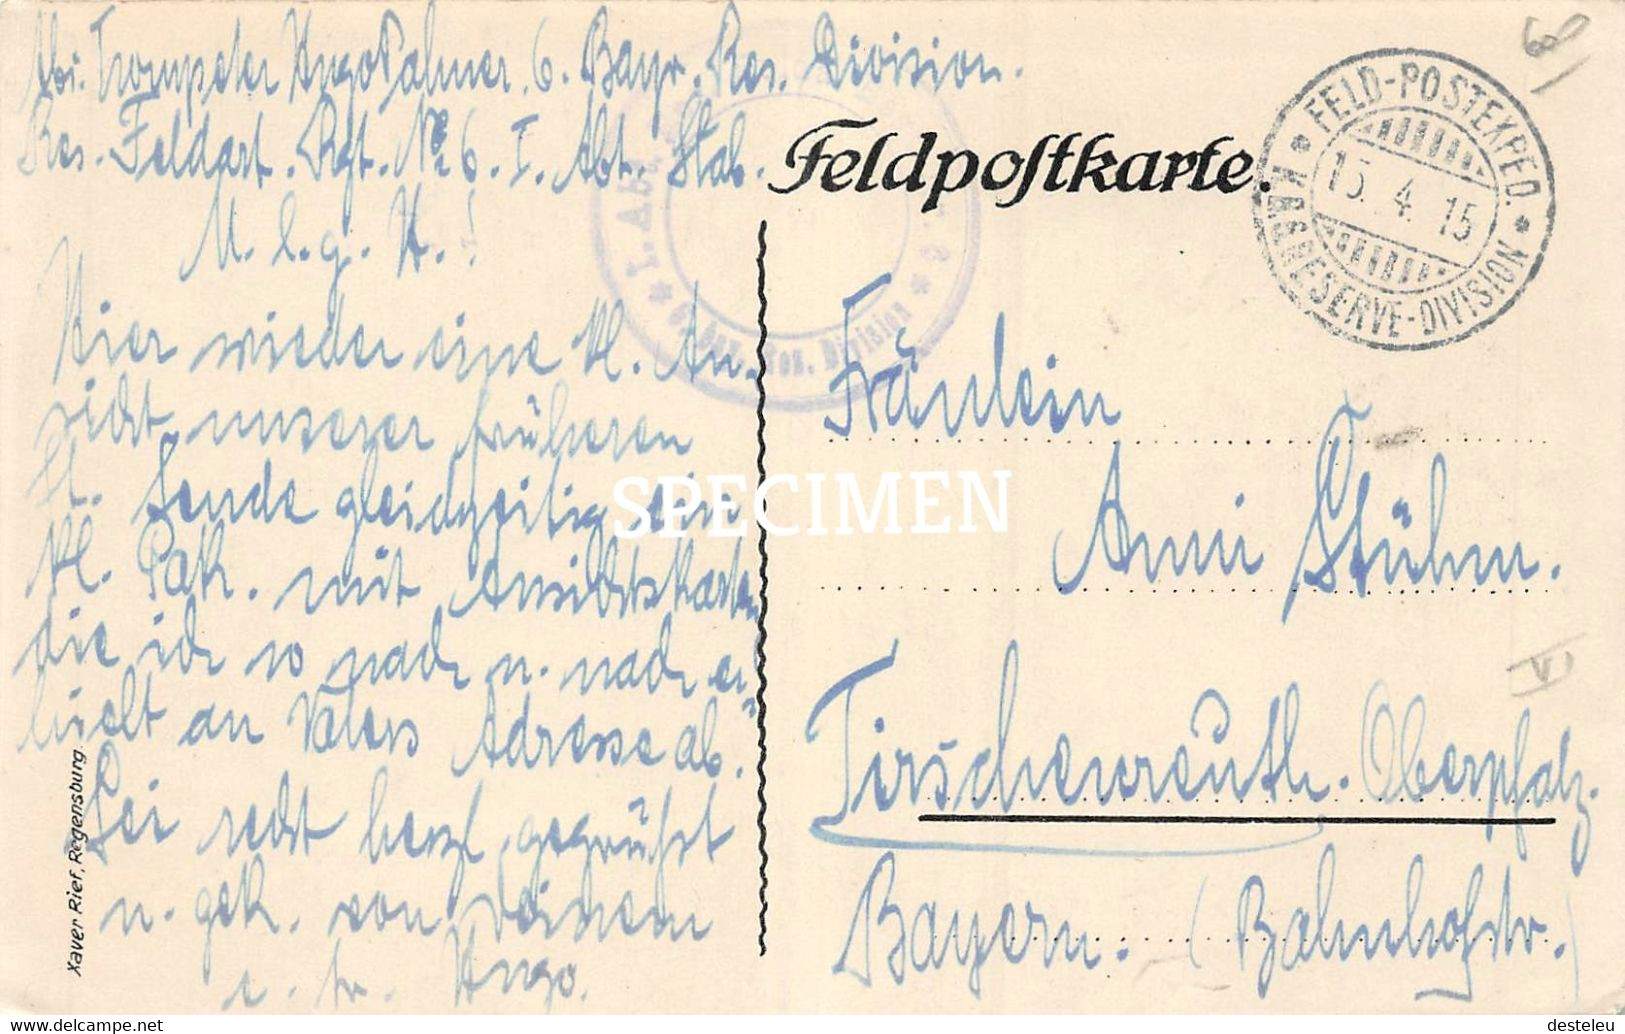 Abs. Trompeter Hugo Palmer. 6. Bayr. Res. Division.
Res. Feldart. Rgt. No 6. I. Abt. Stab.
M. l. g. A.!
Hier wieder eine kl. An-
sicht unserer früheren
St. Sende gleichzeitig ein
kl. Pak. mit Ansichtskarten
die ich so nach u. nach er-
hielt an Vaters Adresse ab.
Sei recht herzl. gegrüßt
u. gek. von Deinem
Hugo.
Feldpostkarte.
FELD-POSTEXPED.
15. 4. 15
K.B.6.RESERVE-DIVISION
I. Abt.
6. bay. Res. Division
Fräulein
Anni Stühm.
Tirschenreuth. Oberpfalz.
Bayern. (Bahnhofstr.)
Xaver Rief, Regensburg
SPECIMEN
VI
68
delcampe.net
desteleu